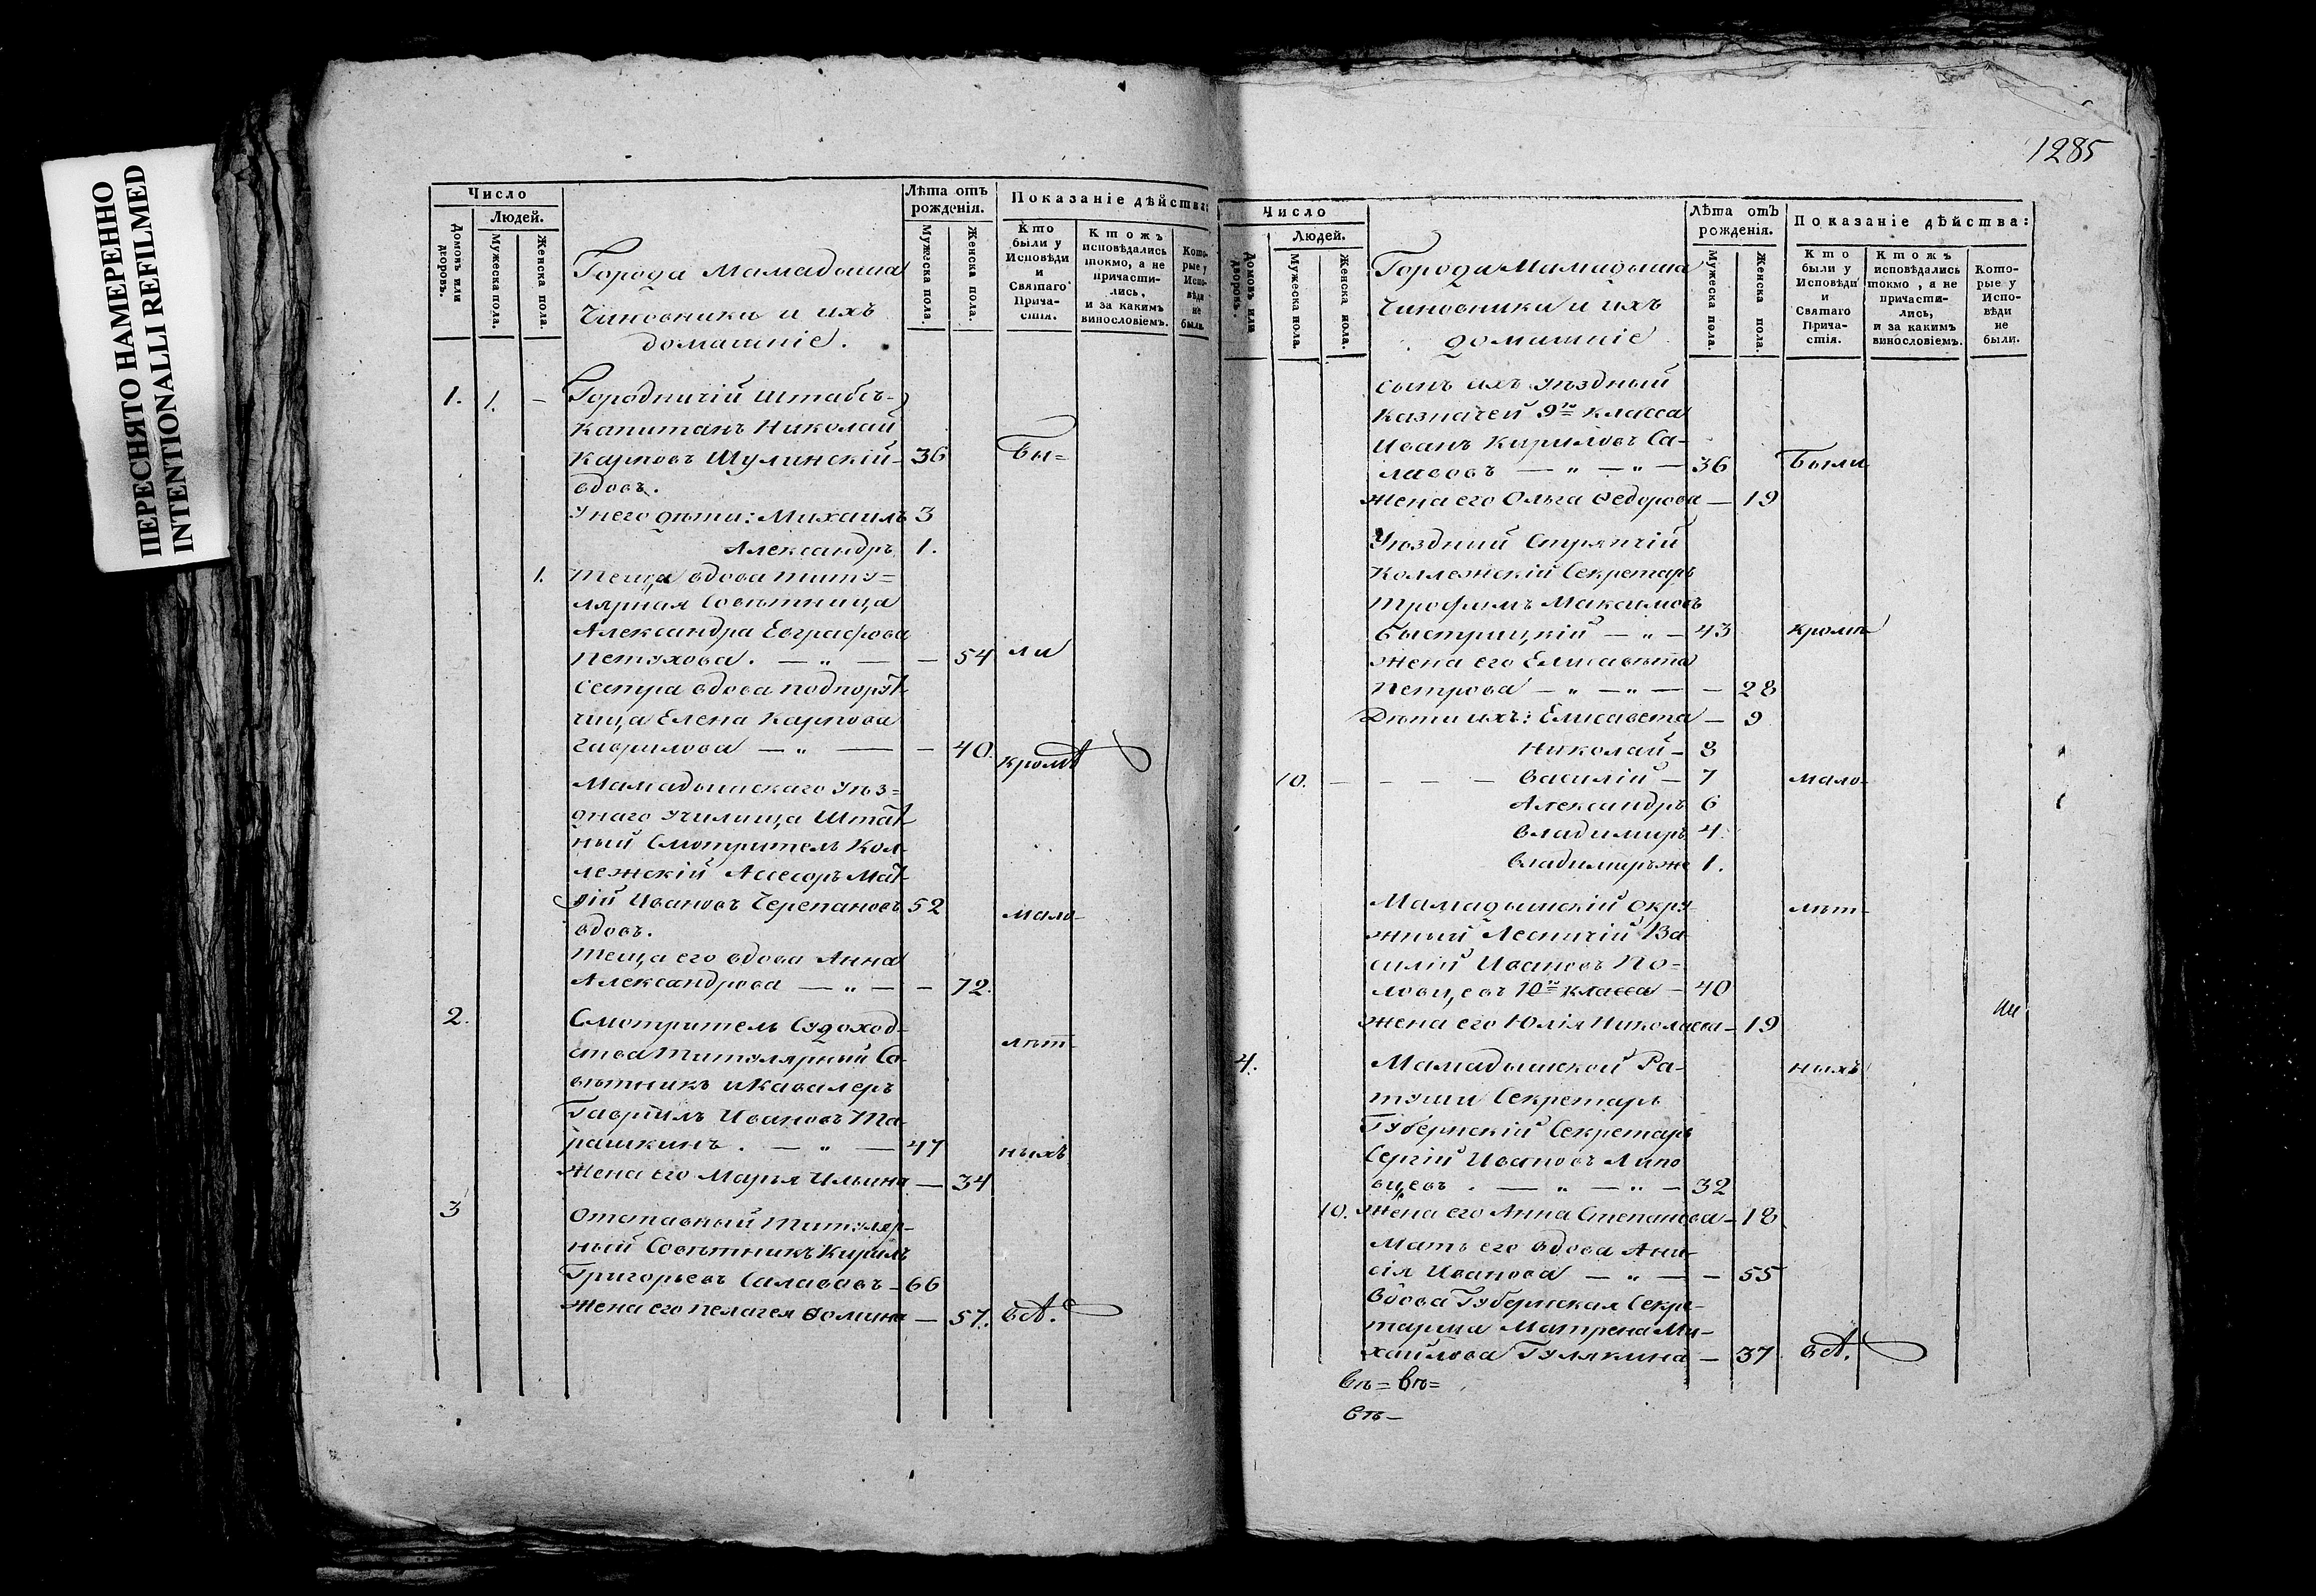 ПЕРЕСНЯТО НАМЕРЕННО
INTENTIONALLI REFILMED
Число
Людей.
Домовъ или дворовъ.
Мужеска пола.
Женска пола.
Города Мамадыша
Чиновники и ихъ
домашніе.
Лѣта отъ
рожденія.
Мужеска пола.
Женска пола.
Показаніе дѣйства:
Кто
были у
Исповѣди
и
Святаго
Прича-
стія.
Ктожъ
исповѣдались
токмо, а не
причасти-
лись,
и за какимъ
винословіемъ.
Кото-
рые у
Испо-
вѣди
не
были.
1. 1. — Городничій Штабсъ-
Капитанъ Николай
Карповъ Шулинскій — 36 Бы=
вдовъ.
У него дѣти: Михаилъ 3
Александръ 1.
1. Теща вдова титу=
лярная Совѣтница
Александра Евграфова
Петухова. — „ — — 54 ли
Сестра вдова подпору-
чица Елена Карпова
Гаврилова — „ — — 40. кромѣ
Мамадышскаго Уѣз=
днаго Училища Штат-
ный Смотритель Кол-
лежскій Ассесоръ Мат-
ѳій Ивановъ Черепановъ 52 мало-
вдовъ.
Теща его вдова Анна
Александрова — „ — — 72.
2. Смотритель Судоход-
ства Титулярный Со-
вѣтникъ и Кавалеръ лѣт-
Гавріилъ Ивановъ Та-
рашкинъ. — „ — 47 ныхъ
Жена его Марья Ильина — 34
3 Отставный Титуляр-
ный Совѣтникъ Кирилъ
Григорьевъ Салававъ — 66
Жена его Пелагея Ѳомина — 57. всѣ.
1285
Число
Людей.
Домовъ или дворовъ.
Мужеска пола.
Женска пола.
Города Мамадыша
Чиновники и ихъ
домашніе
Лѣта отъ
рожденія.
Мужеска пола.
Женска пола.
Показаніе дѣйства:
Кто
были у
Исповѣди
и
Святаго
Прича-
стія.
Ктожъ
исповѣдались
токмо, а не
причасти-
лись,
и за какимъ
винословіемъ.
Кото-
рые у
Испо-
вѣди
не
были.
Сынъ ихъ Уѣздный
Казначей 9го класса
Иванъ Кириловъ Са-
лавовъ — „ — „ — 36 Были
Жена его Ольга Ѳедорова — 19
Уѣздный Стряпчій
Коллежскій Секретарь
Трофимъ Максимовъ
Быстрицкій — „ — 43 Кромѣ
Жена его Елисавѣта
Петрова — „ — „ — — 28
Дѣти ихъ: Елисавета — 9
Николай — 8
10. — — — — Василій — 7 мало-
Александръ 6
Владимиръ 4.
Владимиръ же 1.
Мамадышскій Окру- лѣт-
жный Лесничій Ва-
силій Ивановъ По-
ловцевъ 10го класса — 40
Жена его Юлія Николаева — 19
4. Мамадышской Ра- ныхъ
туши Секретарь
Губернскій Секретарь
Сергій Ивановъ Липо
вцевъ. — „ — „ — 32
10. Жена его Анна Степанова — 18
Мать его вдова Ани-
сія Иванова — „ — — 55
Вдова Губернская Секре-
тарша Матрена Ми-
хайлова Гулякина — 37 всѣ.